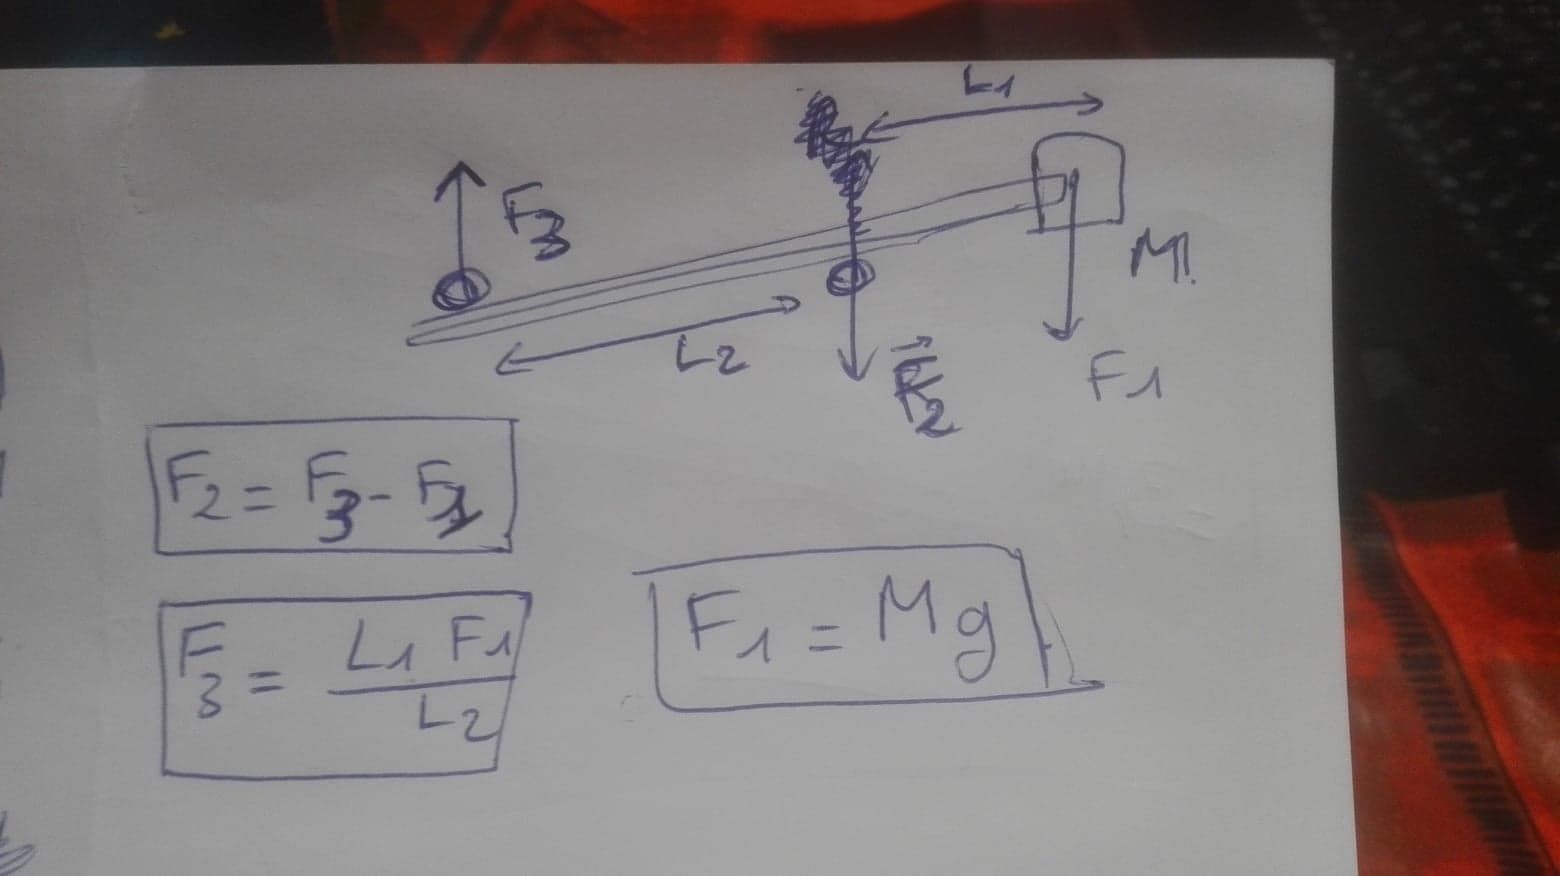 L1
F3
M1
L2
F2
F1
F2 = F3 - F1
F3 = L1 F1 / L2
F1 = Mg